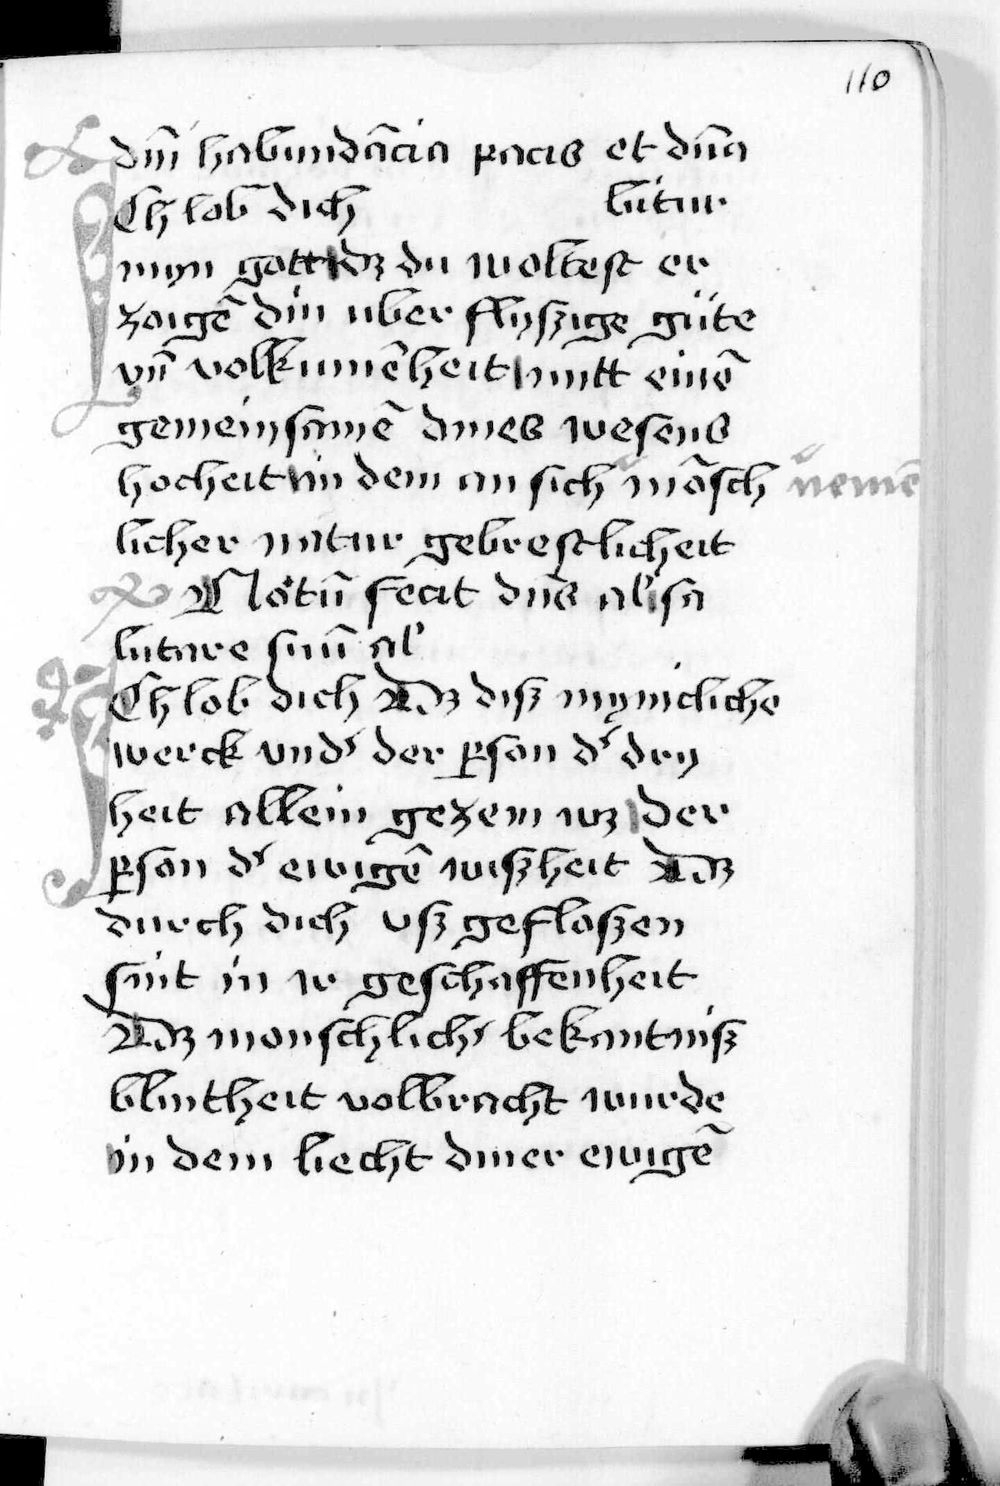 110
dm̄ habundācia pacis et dūa
Ch lob dich bitur
myn gott dz du woltest er
zoigē din uber flyszige gůte
vn̄ volkumēheit mitt einē
gemeinsamē dines wesens
hocheit in dem an sich nemē mōsch
licher natur gebrestlicheit
Notū fecit dn̄s al' sa
lutare suū al'
Ch lob dich Dz disz mynicliche
werck vnd' der pson d' dry
heit allein gezem wz der
pson d' ewigē wiszheit Dz
durch dich vsz gefloszen
sint in ir geschaffenheit
Dz monschlich' bekantnisz
blintheit volbracht wurde
in dem liecht diner ewigē